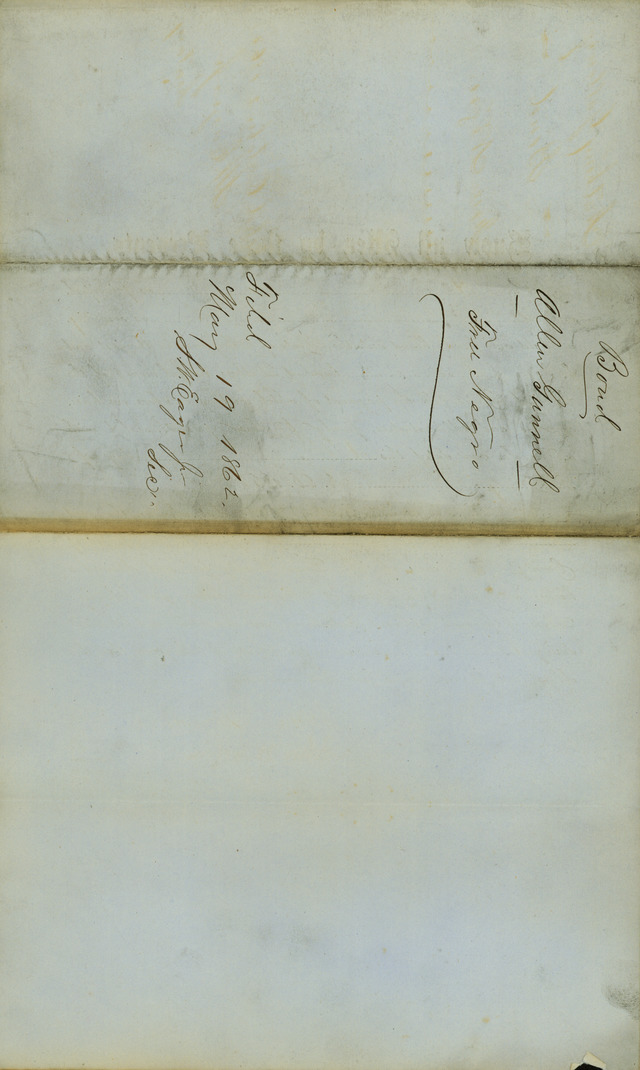 Bond
Allen Gunnell
Free Negro
Filed
May 19 1862.
S W Eager Jr